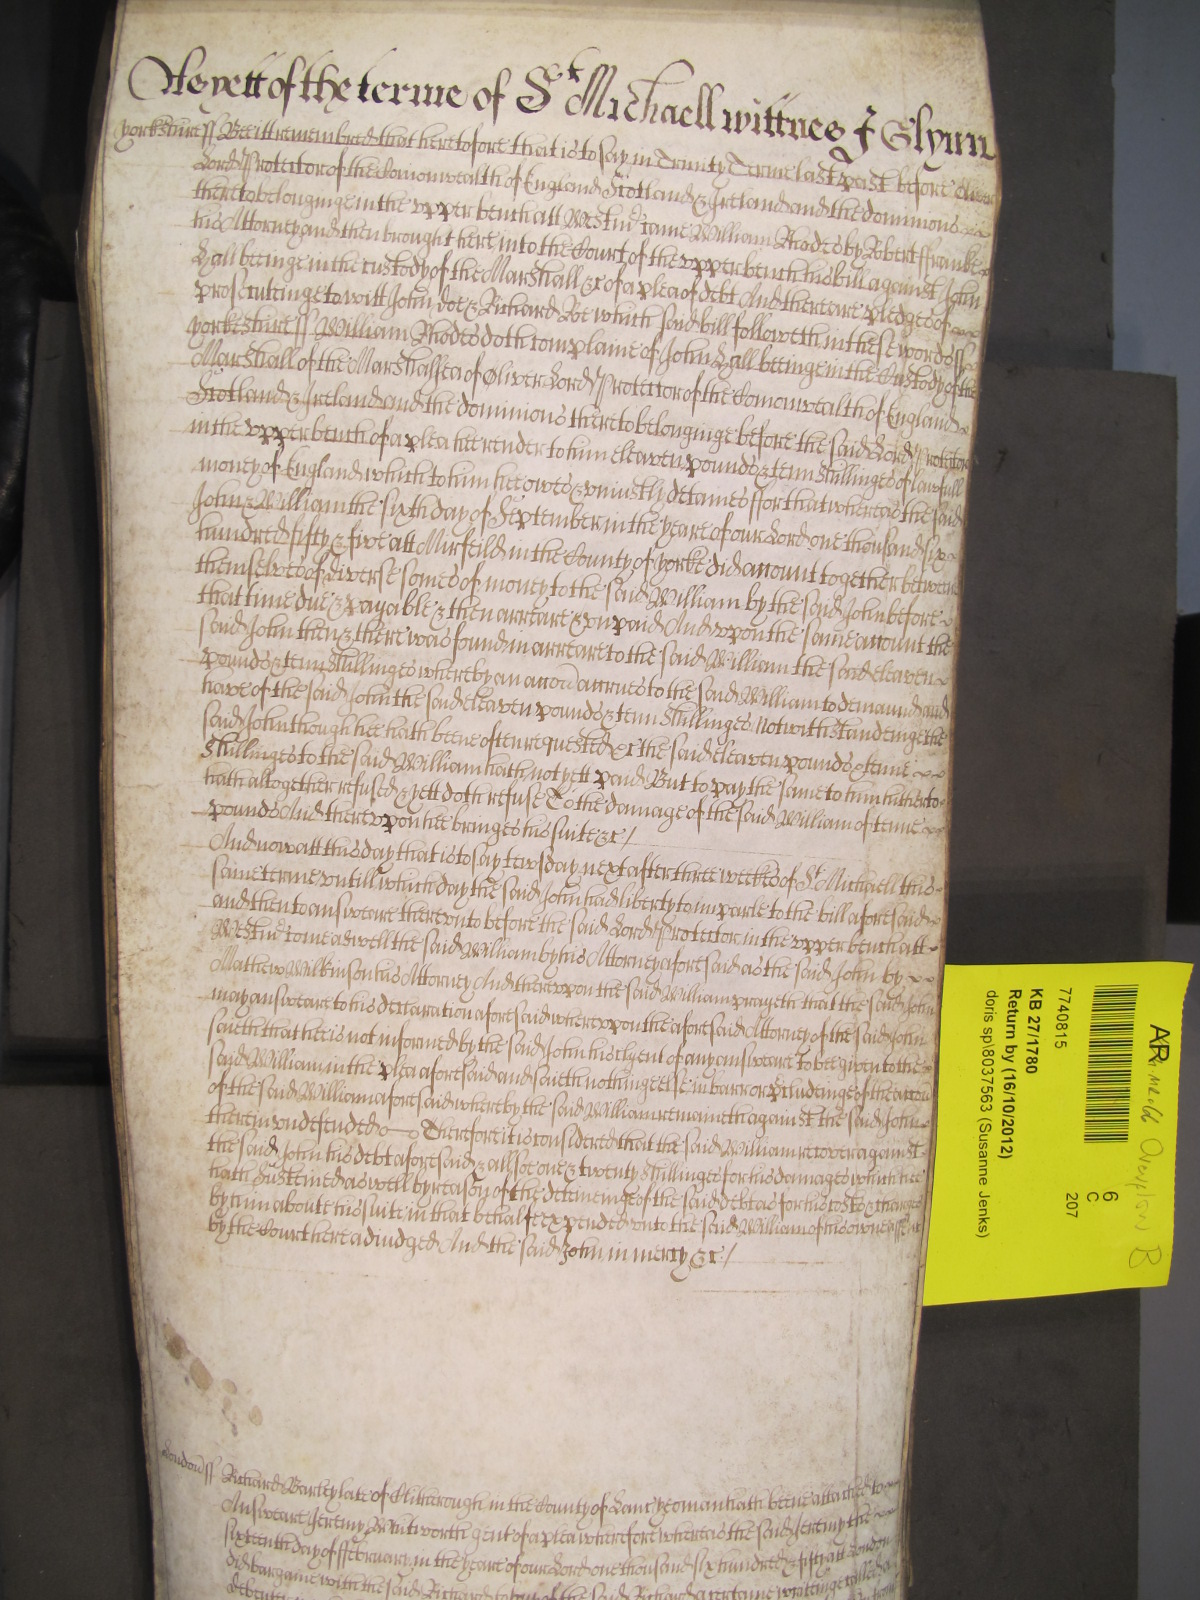 As yett of the terme of St Michaell wittnes J Glynn
Yorkshire ss Bee it remembred that heretofore that is to say in Trinity Terme last past before Oliver
Lord Protector of the Comonwealth of England Scotland & Ireland and the dominions
thereto belonginge in the upper bench att Westmr came William Rhodes by Robert ffranke
his Attorney and then brought here into the Court of the upper bench his bill against John
Hall beeinge in the custody of the Marshall &c of a plea of debt And there are pledges of
prosecutinge to witt John doe & Richard Roe which said bill followeth in these words ss
Yorkeshire ss William Rhodes doth complaine of John Hall beeinge in the Custody of the
Marshall of the Marshallsea of Oliver Lord Protector of the Comonwealth of England
Scotland & Ireland and the dominions thereto belonginge before the said Lord Protector
in the upper bench of a plea hee render to him eleaven pounds & tenn shillinges of lawfull
money of England which to him hee owes & uniustly detaines ffor that whereas the said
John & William the sixth day of September in the yeare of our Lord one thousand six
hundred fifty & five att Mirfeild in the County of Yorke did account together betweene
themselves of diverse somes of money to the said William by the said John before
that time due & payable & then arreare & unpaid And upon the same account the
said John then & there was found in arreare to the said William the said eleaven
pounds & tenn shillinges whereby an accon accrues to the said William to demaund and
have of the said John the said eleaven pounds & tenn shillinges Notwithstandeinge the
said John though hee hath beene often requested &c the said eleaven pounds & tenne
shillinges to the said William hath not yett paid But to pay the same to him hitherto
hath altogether refused & yett doth refuse To the damage of the said William of tenne
pounds And thereupon hee bringes his suite &c /
And now att this day that is to say tewsday next after three weekes of St Michaell this
same terme untill which day the said John had liberty to imparle to the bill aforesaid
and then to answeare thereunto before the said Lord Protector in the upper bench att
Westmr come aswell the said William by his Attorney aforesaid as the said John by
Mathew Wilkinson his Attorney And thereupon the said William prayeth that the said John
may answeare to his declaration aforesaid whereupon the aforesaid Attorney of the said John
saieth that hee is not informed by the said John his clyent of any answeare to bee given to the
said William in the plea aforesaid and saieth nothinge else in barr or pcludinge of the accon
of the said William aforesaid whereby the said William remaineth against the said John
therein undefended Therefore it is considered that the said William recover against
the said John his debt aforesaid & allsoe one & twenty shillinges for his damages which hee
hath sustained aswell by reason of the deteineinge of the said debt as for his costs & charges
by him aboute his suite in that behalfe expended unto the said William of his owne assent
by the Court here adiudged And the said John in mercy &c /
London ss Richard Barley late of Clitherough in the County of Lanc yeoman hath beene attached to
Answeare Jeremy Whitworth gent of a plea wherefore whereas the said Jeremy the
sixteenth day of ffebruary in the yeare of our Lord one thousand six hundred & fifty att London
did bargaine with the said Richard to buy of the said Richard a certaine writtinge called
7740815
KB 27/1780
Return by (16/10/2012)
doris sp\8037563 (Susanne Jenks)
6
C
207
AR
B